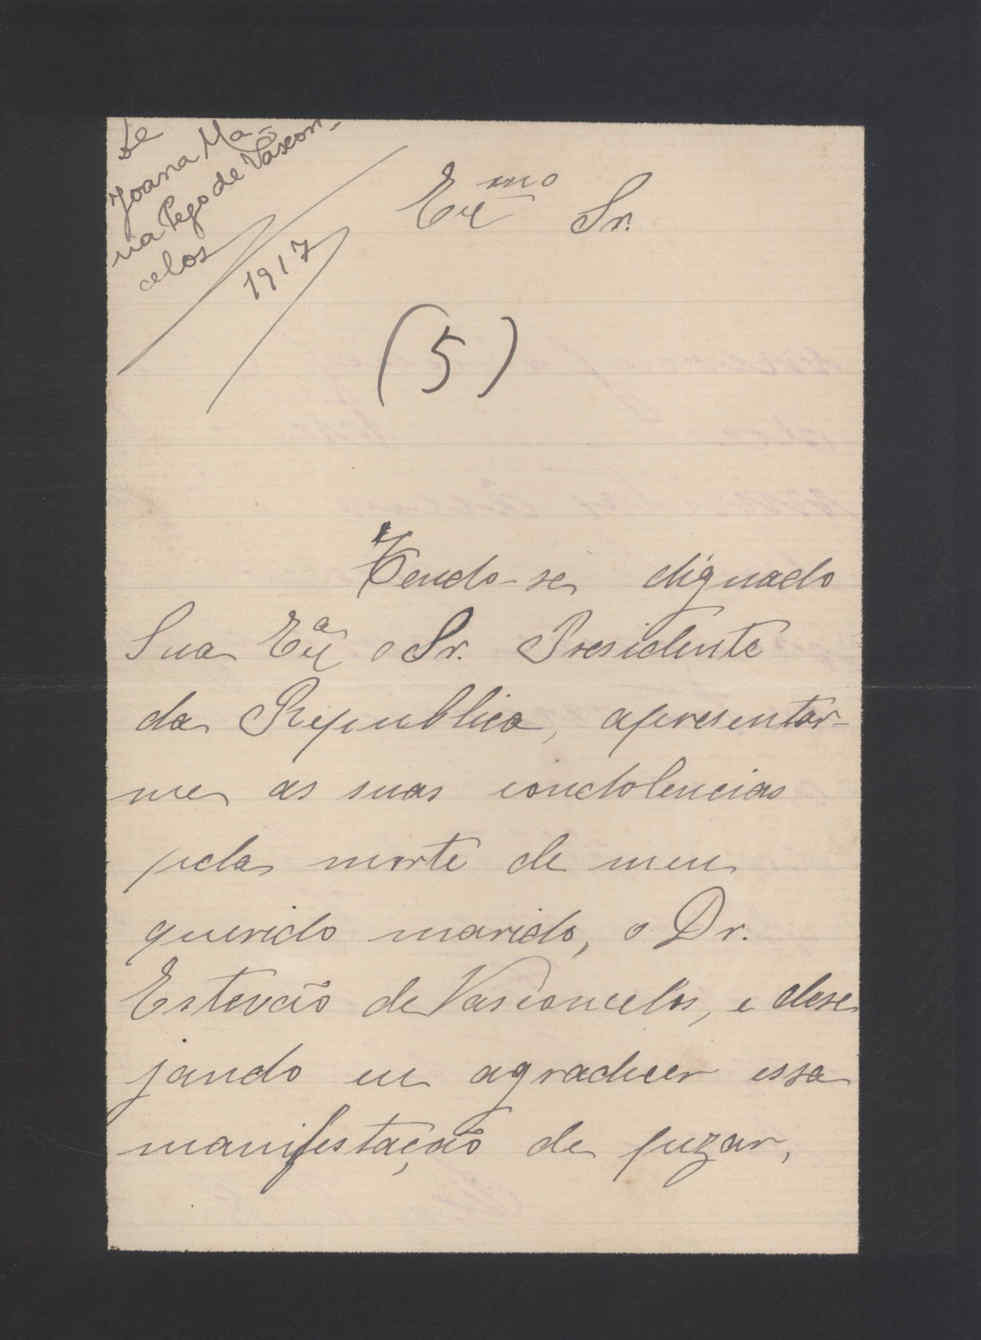 De
Joana Ma-
ria Pego de Vascon-
celos
1917
Exmo Sr.
(5)
Tendo-se dignado
Sua Exª o Sr. Presidente
da Republica, apresentar-
me as suas condolencias
pela morte de meu
querido marido, o Dr.
Estevão de Vasconcelos, e dese
jando eu agradecer essa
manifestação de pezar,